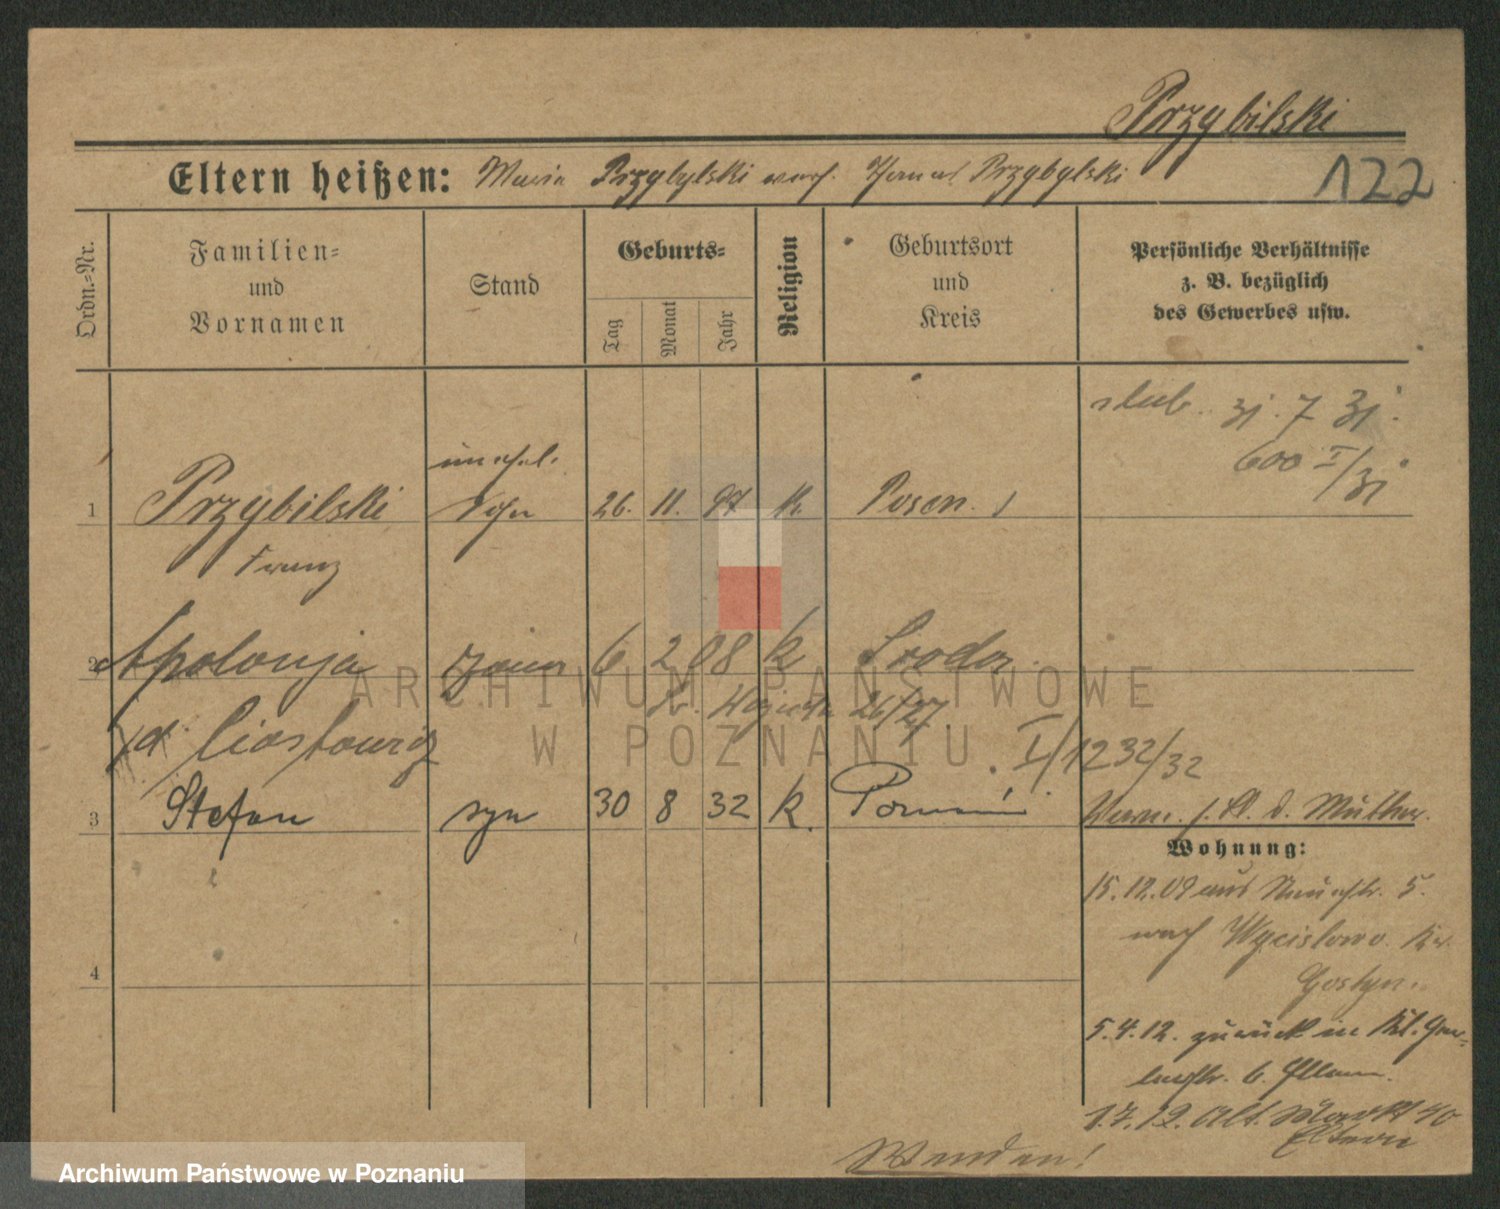 Przybilski
Eltern heißen: Maria Przybylski verh. Przybylski
122
Ordn.-Nr.
Familien-
und
Vornamen
Stand
Geburts-
Tag
Monat
Jahr
Religion
Geburtsort
und
Kreis
Persönliche Verhältnisse
z. B. bezüglich
des Gewerbes usw.
ślub. 31. 7 31.
600 I/31
unehel.
1 Przybilski Sohn 26. 11. 97 k. Posen.
Franz
2 Apolonja żona 6 2 08 k Środa.
26/27
I/1232/32
3 Stefan syn 30 8 32 k. Poznań
d. Mutter.
Wohnung:
15. 12. 09 aus 5.
nach Wycislowo. Kr.
Gostyn.
4
5. 4. 12. zurück in Kl. Ger-
berstr. 6. Eltern.
1. 7. 12. Alt. Markt 40
Eltern
Wenden!
ARCHIWUM PAŃSTWOWE
W POZNANIU
Archiwum Państwowe w Poznaniu